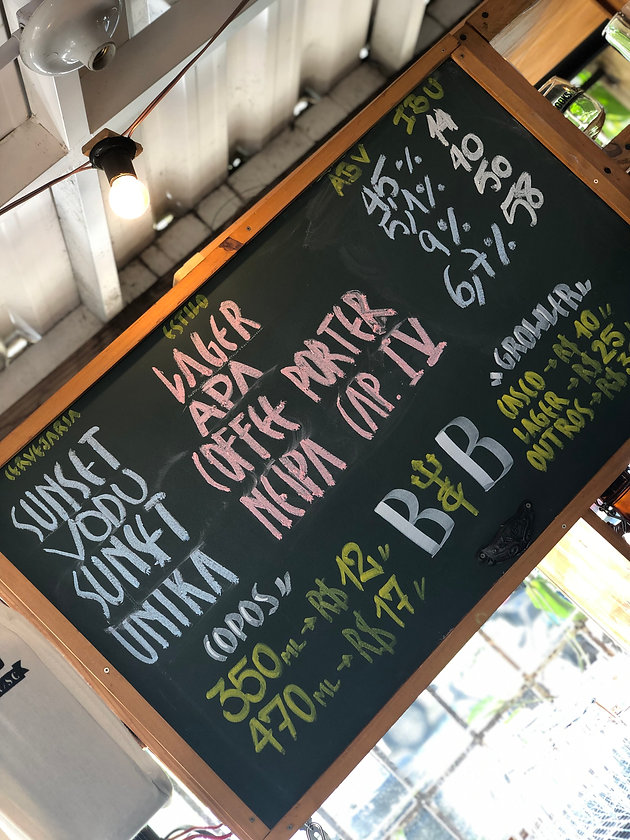 CERVEJARIA ESTILO ABV IBU
SUNSET LAGER 4,5% 14
VODU APA 5,1% 40
SUNSET COFFEE PORTER 9% 50
UNIKA NEIPA CAP. IV 6,7% 58
COPOS"
350 ML → R$ 12"
470 ML → R$ 17"
B&B
"GROWLER"
CASCO → R$ 10"
LAGER → R$ 25"
OUTROS → R$